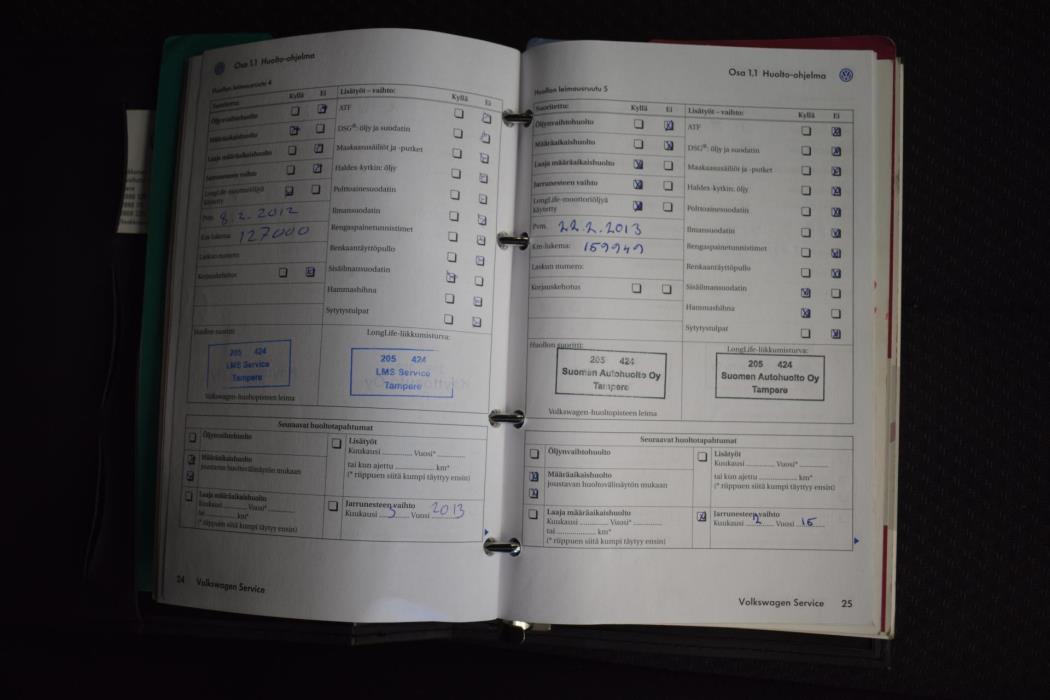 Osa 1.1 Huolto-ohjelma
Huollon leimausruutu 4
Suoritettu: Kyllä Ei
Öljynvaihtohuolto
Määräaikaishuolto
Laaja määräaikaishuolto
Jarrunesteen vaihto
LongLife-moottoriöljyä
käytetty
Pvm. 8.2.2012
Km-lukema: 127000
Laskun numero:
Korjauskehotus
Lisätyöt – vaihto: Kyllä Ei
ATF
DSG®: öljy ja suodatin
Maakaasusäiliöt ja -putket
Haldex-kytkin: öljy
Polttoainesuodatin
Ilmansuodatin
Rengaspainetunnistimet
Renkaantäyttöpullo
Sisäilmansuodatin
Hammashihna
Sytytystulpat
Huollon suoritti:
205 424
LMS Service
Tampere
Volkswagen-huoltopisteen leima
LongLife-liikkumisturva:
205 424
LMS Service
Tampere
Seuraavat huoltotapahtumat
Öljynvaihtohuolto
Määräaikaishuolto
joustavan huoltovälinäytön mukaan
Laaja määräaikaishuolto
Kuukausi ............ Vuosi* ............
tai .................... km*
(* riippuen siitä kumpi täyttyy ensin)
Lisätyöt
Kuukausi ............ Vuosi* ............
tai kun ajettu ............ km*
(* riippuen siitä kumpi täyttyy ensin)
Jarrunesteen vaihto
Kuukausi 3 Vuosi 2013
24 Volkswagen Service
Osa 1.1 Huolto-ohjelma
Huollon leimausruutu 5
Suoritettu: Kyllä Ei
Öljynvaihtohuolto
Määräaikaishuolto
Laaja määräaikaishuolto
Jarrunesteen vaihto
LongLife-moottoriöljyä
käytetty
Pvm. 22.2.2013
Km-lukema: 159949
Laskun numero:
Korjauskehotus
Lisätyöt – vaihto: Kyllä Ei
ATF
DSG®: öljy ja suodatin
Maakaasusäiliöt ja -putket
Haldex-kytkin: öljy
Polttoainesuodatin
Ilmansuodatin
Rengaspainetunnistimet
Renkaantäyttöpullo
Sisäilmansuodatin
Hammashihna
Sytytystulpat
Huollon suoritti:
205 424
Suomen Autohuolto Oy
Tampere
Volkswagen-huoltopisteen leima
LongLife-liikkumisturva:
205 424
Suomen Autohuolto Oy
Tampere
Seuraavat huoltotapahtumat
Öljynvaihtohuolto
Määräaikaishuolto
joustavan huoltovälinäytön mukaan
Laaja määräaikaishuolto
Kuukausi ............ Vuosi* ............
tai .................... km*
(* riippuen siitä kumpi täyttyy ensin)
Lisätyöt
Kuukausi ............ Vuosi* ............
tai kun ajettu ............ km*
(* riippuen siitä kumpi täyttyy ensin)
Jarrunesteen vaihto
Kuukausi 2 Vuosi 15
Volkswagen Service 25